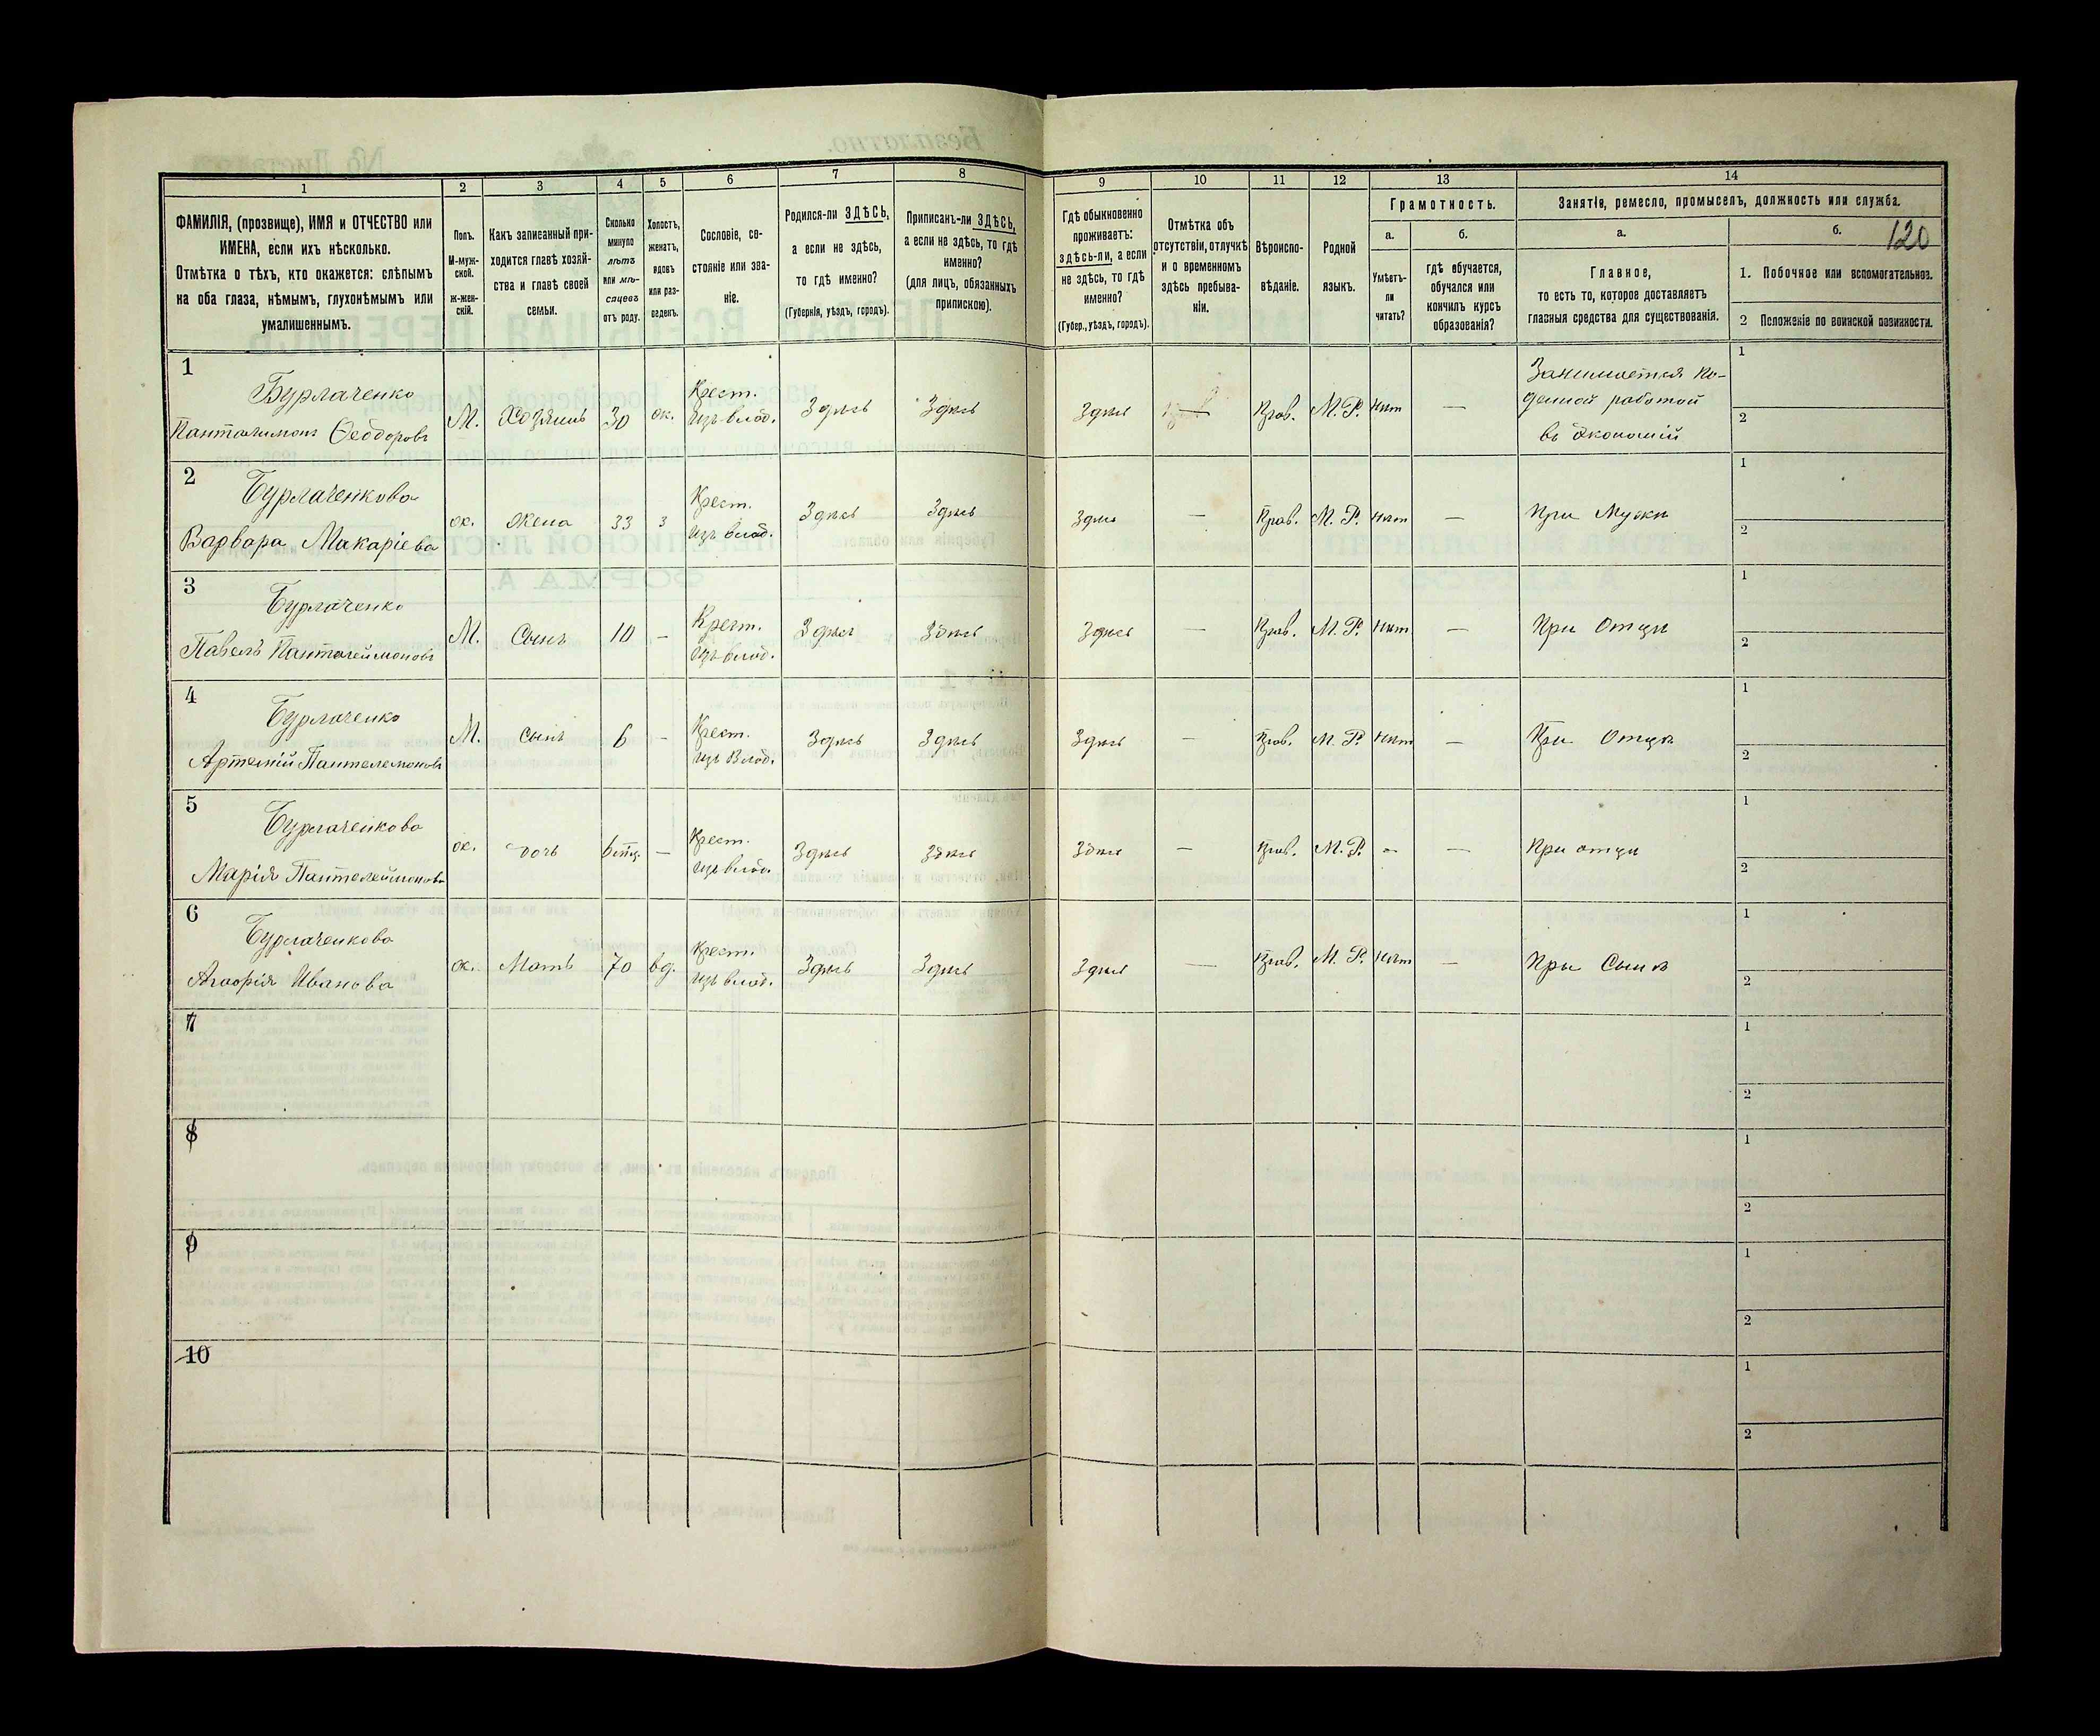 1 2 3 4 5 6 7 8 9 10 11 12 13 14
ФАМИЛІЯ, (прозвище), ИМЯ и ОТЧЕСТВО или
ИМЕНА, если ихъ нѣсколько.
Отмѣтка о тѣхъ, кто окажется: слѣпымъ
на оба глаза, нѣмымъ, глухонѣмымъ или
умалишеннымъ.
Полъ.
М-муж-
ской.
ж-жен-
скій.
Какъ записанный при-
ходится главѣ хозяй-
ства и главѣ своей
семьи.
Сколько
минуло
лѣтъ
или мѣ-
сяцевъ
отъ роду.
Холостъ,
женатъ,
вдовъ
или раз-
веденъ.
Сословіе, со-
стояніе или зва-
ніе.
Родился-ли ЗДѢСЬ,
а если не здѣсь,
то гдѣ именно?
(Губернія, уѣздъ, городъ).
Приписанъ-ли ЗДѢСЬ,
а если не здѣсь, то гдѣ
именно?
(для лицъ, обязанныхъ
припискою).
Гдѣ обыкновенно
проживаетъ:
здѣсь-ли, а если
не здѣсь, то гдѣ
именно?
(Губер., уѣздъ, городъ).
Отмѣтка объ
отсутствіи, отлучкѣ
и о временномъ
здѣсь пребыва-
ніи.
Вѣроиспо-
вѣданіе.
Родной
языкъ.
Грамотность.
а.
Умѣетъ-
ли
читать?
б.
гдѣ обучается,
обучался или
кончилъ курсъ
образованія?
Занятіе, ремесло, промыселъ, должность или служба.
а.
Главное,
то есть то, которое доставляетъ
главныя средства для существованія.
б. 120
1. Побочное или вспомогательное.
2 Положеніе по воинской повинности.
1
Бурлаченко
Панталимонъ Ѳеодоровъ
М. Хозяинъ 30 ж.
Крест.
изъ влад.
Здѣсь Здѣсь Здѣсь — Прав. М. Р. Нѣт —
Занимается по-
денной работой
въ экономій
1
2
2
Бурлаченкова
Варвара Макаріева
ж. Жена 33 з
Крест.
изъ влад.
Здѣсь Здѣсь Здѣсь — Прав. М. Р. Нѣт — При Мужѣ
1
2
3
Бурлаченко
Павелъ Панталеймоновъ
М. Сынъ 10 —
Крест.
изъ влад.
Здѣсь Здѣсь Здѣсь — Прав. М. Р. Нѣт — При Отцѣ
1
2
4
Бурлаченко
Артемій Пантелемоновъ
М. Сынъ 6 —
Крест.
изъ Влад.
Здѣсь Здѣсь Здѣсь — Прав. М. Р. Нѣт — При Отцѣ
1
2
5
Бурлаченкова
Марія Пантелеймонова
ж. дочь —
Крест.
изъ влад.
Здѣсь Здѣсь Здѣсь — Прав. М. Р. — — При отцѣ
1
2
6
Бурлаченкова
Агафія Иванова
ж. Мать 70 вд.
Крест.
изъ влад.
Здѣсь Здѣсь Здѣсь — Прав. М. Р. Нѣт — При Сынѣ
1
2
7
1
2
8
1
2
9
1
2
10
1
2